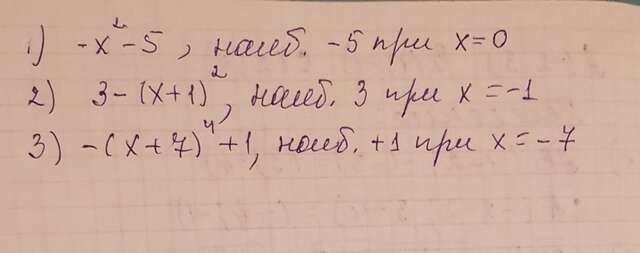 1) -x² - 5, наиб. -5 при x = 0
2) 3 - (x + 1)², наиб. 3 при x = -1
3) - (x + 7)⁴ + 1, наиб. +1 при x = -7